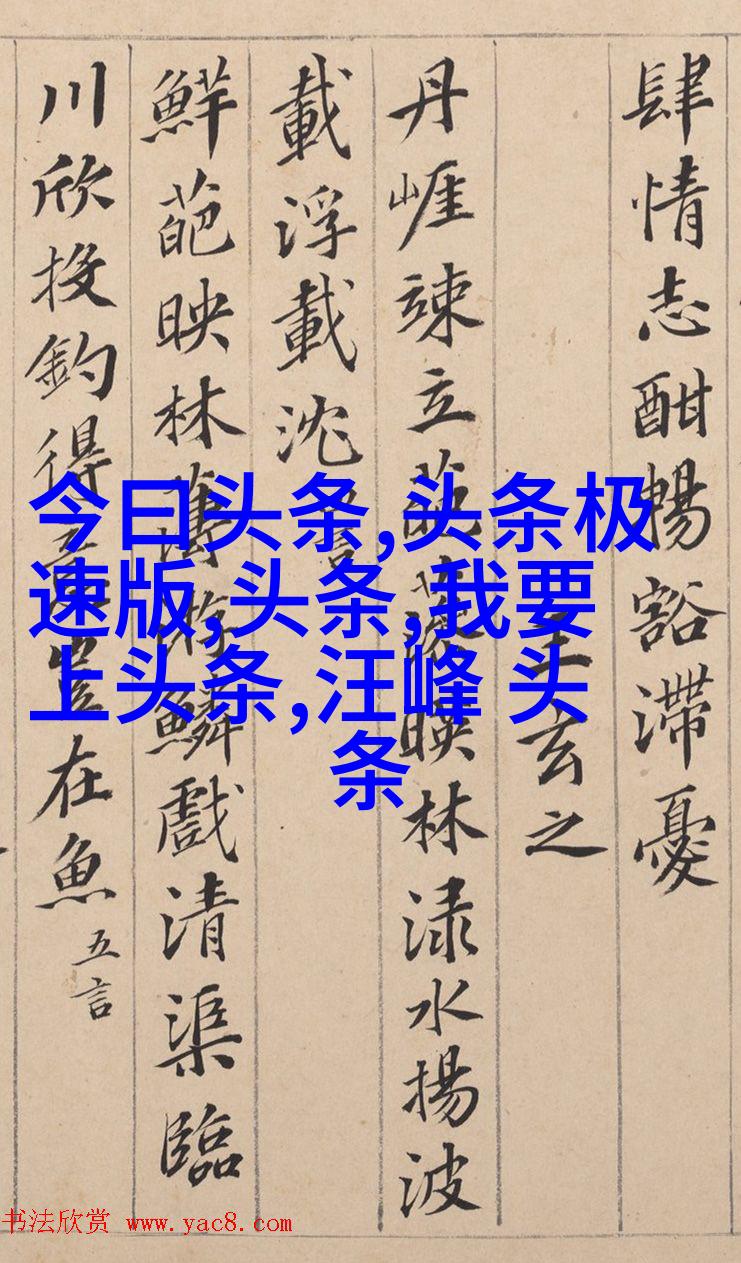 肆情志酣暢豁滯憂
王玄之
丹崕竦立葩藻暎林渌水揚波
載浮載沈
鮮葩映林薄游鱗戲清渠臨
川欣投釣得意豈在魚 五言
今曰头条,头条极
速版,头条,我要
上头条,汪峰 头
条
书法欣赏 www.yac8.com